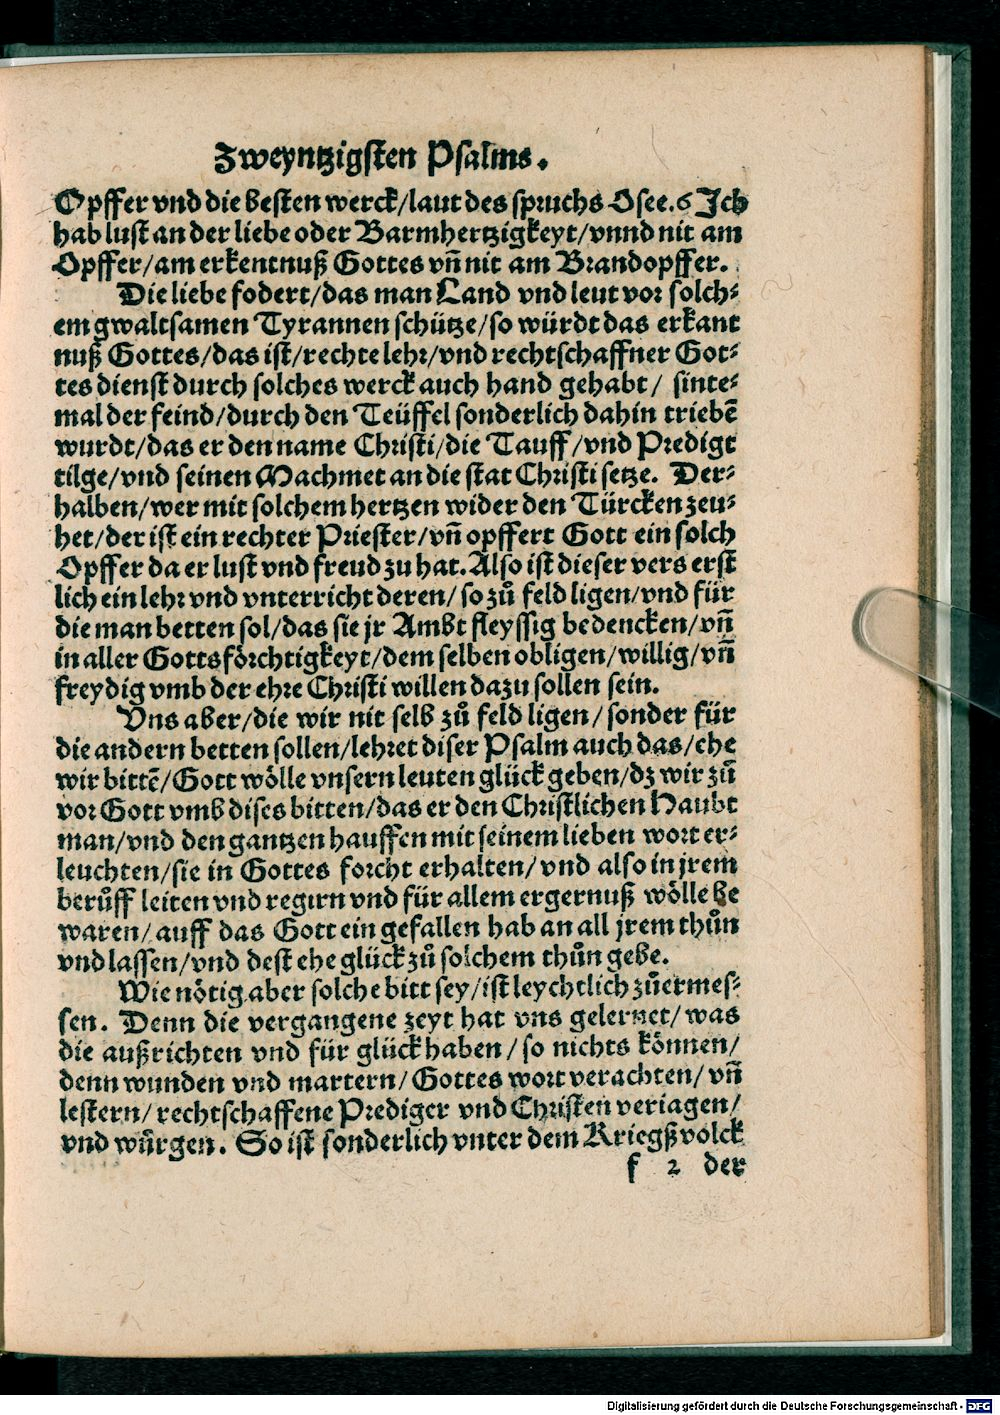 Zweyntzigsten Psalms.
Opffer vnd die besten werck/laut des spruchs Osee.6 Ich
hab lust an der liebe oder Barmhertzigkeyt/vnnd nit am
Opffer/am erkentnuß Gottes vn̄ nit am Brandopffer.
Die liebe fodert/das man Land vnd leut vor solch⸗
em gwaltsamen Tyrannen schütze/so würdt das erkant
nuß Gottes/das ist/rechte lehr/vnd rechtschaffner Got⸗
tes dienst durch solches werck auch hand gehabt/ sinte⸗
mal der feind/durch den Teüffel sonderlich dahin triebē
wurdt/das er den name Christi/die Tauff/vnd Predigt
tilge/vnd seinen Machmet an die stat Christi setze. Der⸗
halben/wer mit solchem hertzen wider den Türcken zeu⸗
het/der ist ein rechter Priester/vn̄ opffert Gott ein solch
Opffer da er lust vnd freud zu hat. Also ist dieser vers erst
lich ein lehr vnd vnterricht deren/ so zů feld ligen/vnd für
die man betten sol/das sie jr Ambt fleyssig bedencken/vn̄
in aller Gottsförchtigkeyt/dem selben obligen/willig/vn̄
freydig vmb der ehre Christi willen dazu sollen sein.
Vns aber/die wir nit selb zů feld ligen/sonder für
die andern betten sollen/lehret diser Psalm auch das/ehe
wir bittē/Gott wölle vnsern leuten glück geben/dz wir zů
vor Gott vmb dises bitten/das er den Christlichen Haubt
man/vnd den gantzen hauffen mit seinem lieben wort er⸗
leuchten/sie in Gottes forcht erhalten/vnd also in jrem
berůff leiten vnd regirn vnd für allem ergernuß wölle be
waren/auff das Gott ein gefallen hab an all jrem thůn
vnd lassen/vnd dest ehe glück zů solchem thůn gebe.
Wie nötig aber solche bitt sey/ist leychtlich zůermes⸗
sen. Denn die vergangene zeyt hat vns gelernet/was
die außrichten vnd für glück haben/so nichts können/
denn wunden vnd martern/Gottes wort verachten/vn̄
lestern/rechtschaffene Prediger vnd Christen veriagen/
vnd würgen. So ist sonderlich vnter dem Kriegßvolck
f 2 der
Digitalisierung gefördert durch die Deutsche Forschungsgemeinschaft - DFG